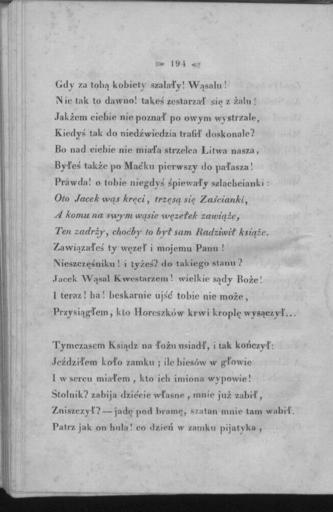 194
Gdy za tobą kobiety szalały! Wąsalu!
Nie tak to dawno! takeś zestarzał się z żalu!
Jakżem ciebie nie poznał po owym wystrzale,
Kiedyś tak do niedźwiedzia trafił doskonale?
Bo nad ciebie nie miała strzelca Litwa nasza,
Byłeś także po Maćku pierwszy do pałasza!
Prawda! o tobie niegdyś śpiewały szlachcianki:
Oto Jacek wąs kręci, trzęsą się Zaścianki,
A komu na swym wąsie węzełek zawiąże,
Ten zadrży, choćby to był sam Radziwił książe.
Zawiązałeś ty węzeł i mojemu Panu!
Nieszczęśniku! i tyżeś? do takiego stanu?
Jacek Wąsal Kwestarzem! wielkie sądy Boże!
I teraz! ha! beskarnie ujść tobie nie może,
Przysiągłem, kto Horeszków krwi kroplę wysączył...
Tymczasem Ksiądz na łożu usiadł, i tak kończył:
Jeździłem koło zamku; ile biesów w głowie
I w sercu miałem, kto ich imiona wypowie!
Stolnik? zabija dziécie własne, mnie już zabił,
Zniszczył? — jadę pod bramę, szatan mnie tam wabił.
Patrz jak on hula! co dzień w zamku pijatyka,